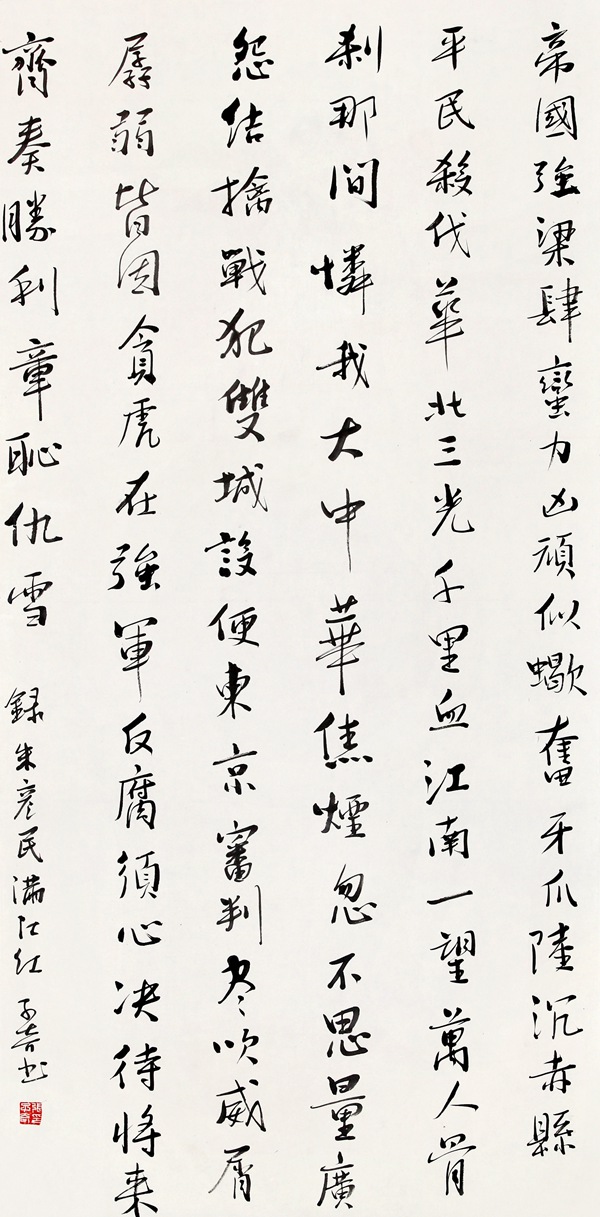 帝國強梁肆蠻力凶頑似蠍奮牙爪陸沉赤縣
平民殺伐華北三光千里血江南一望萬人骨
剎那間憐我大中華焦煙忽不思量廣
怨結擒戰犯雙城設便東京審判尽吹威屑
孱弱皆因貪虎在強軍反腐須心决待将来
齊奏勝利章恥仇雪
録朱彦民满江红 子奇书